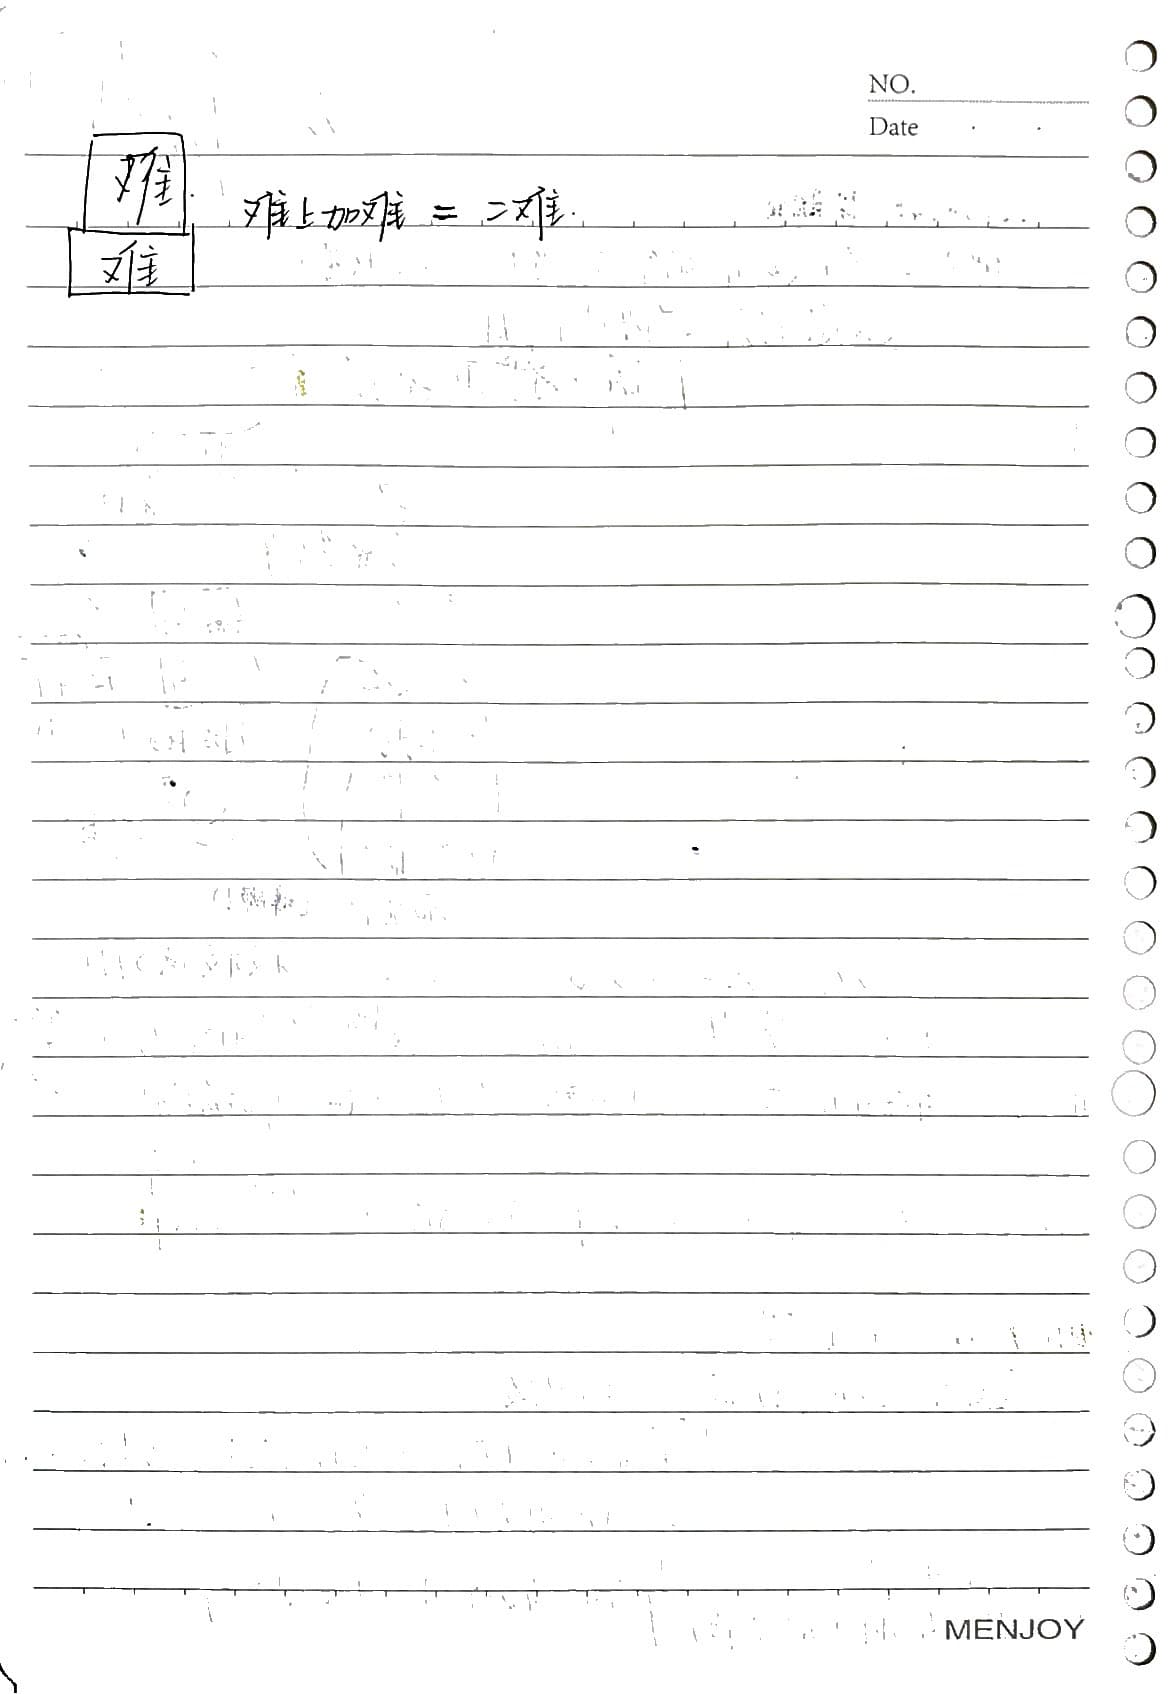 NO.
Date
难
难上加难 = 二难.
难
MENJOY